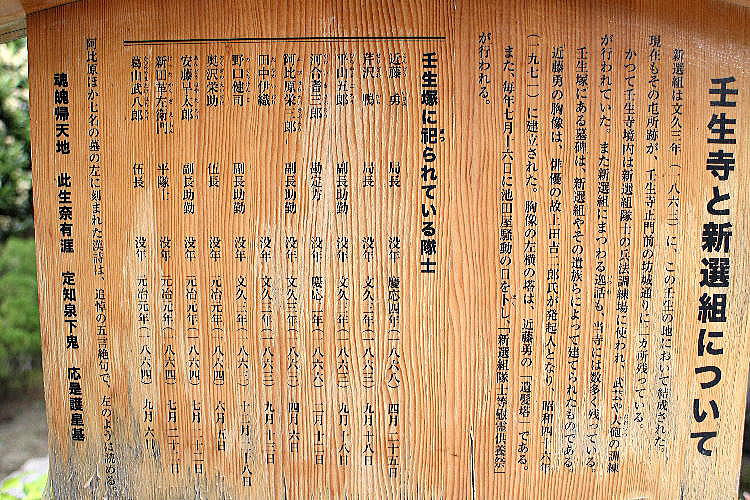 壬生寺と新選組について
新選組は文久三年(一八六三)に、この壬生の地において結成された。
現在もその屯所跡が、壬生寺正門前の坊城通りに二カ所残っている。
かつて壬生寺境内は新選組隊士の兵法訓練場に使われ、武芸や大砲の訓練
が行われていた。また新選組にまつわる逸話も、当寺には数多く残っている。
壬生塚にある墓碑は、新選組やその遺族らによって建てられたものである。
近藤勇の胸像は、俳優の故上田吉二郎氏が発起人となり、昭和四十六年
(一九七一)に建立された。胸像の左横の塔は、近藤勇の「遺髪塔」である。
また、毎年七月十六日に池田屋騒動の日を卜し、「新選組隊士等慰霊供養祭」
が行われる。
壬生塚に祀られている隊士
近藤 勇 局長 没年 慶応四年(一八六八) 四月二十五日
芹沢 鴨 局長 没年 文久三年(一八六三) 九月十八日
平山五郎 副長助勤 没年 文久三年(一八六三) 九月十八日
河合耆三郎 勘定方 没年 慶応二年(一八六六) 二月十二日
阿比原栄三郎 副長助勤 没年 文久三年(一八六三) 四月六日
田中伊織 没年 文久三年(一八六三) 九月十三日
野口健司 副長助勤 没年 文久三年(一八六三) 十二月二十八日
奥沢栄助 伍長 没年 元治元年(一八六四) 六月五日
安藤早太郎 副長助勤 没年 元治元年(一八六四) 七月二十二日
新田革左衛門 平隊士 没年 元治元年(一八六四) 七月二十二日
葛山武八郎 伍長 没年 元治元年(一八六四) 九月六日
阿比原ほか七名の墓の左に刻まれた漢詩は、追悼の五言絶句で、左のように読める。
魂魄帰天地 此生奈有涯 定知泉下鬼 応是護皇基